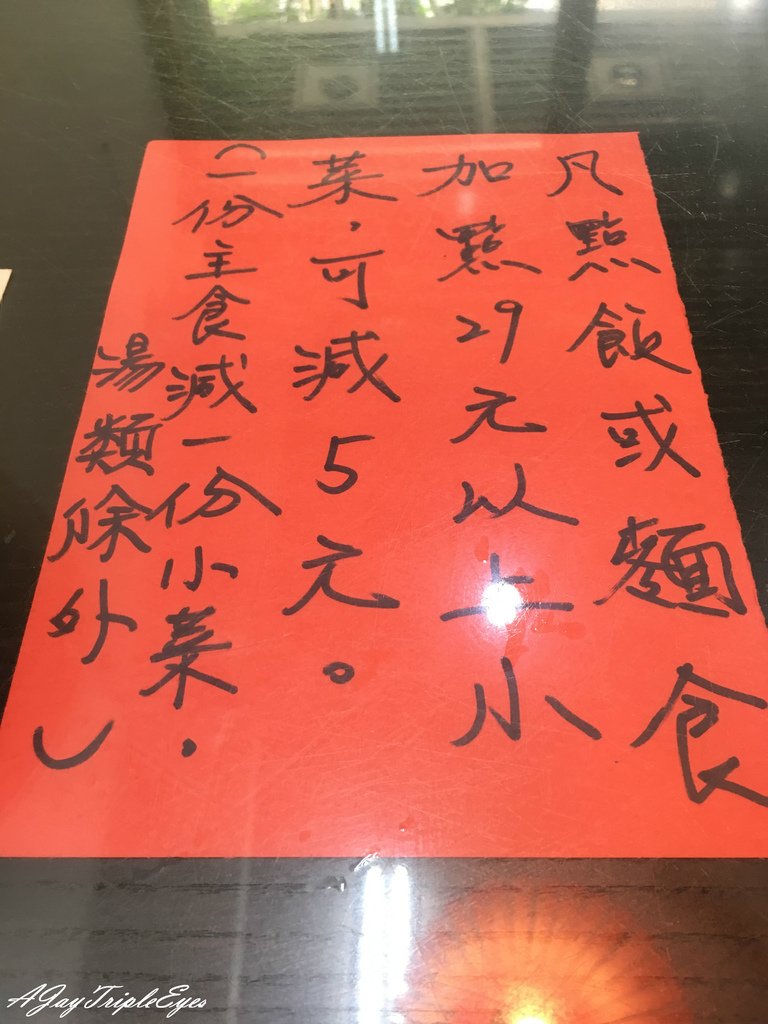 凡點飯或麵食
加點29元以上小
菜，可減5元。
（一份主食減一份小菜，
湯類除外）
AJayTripleEyes